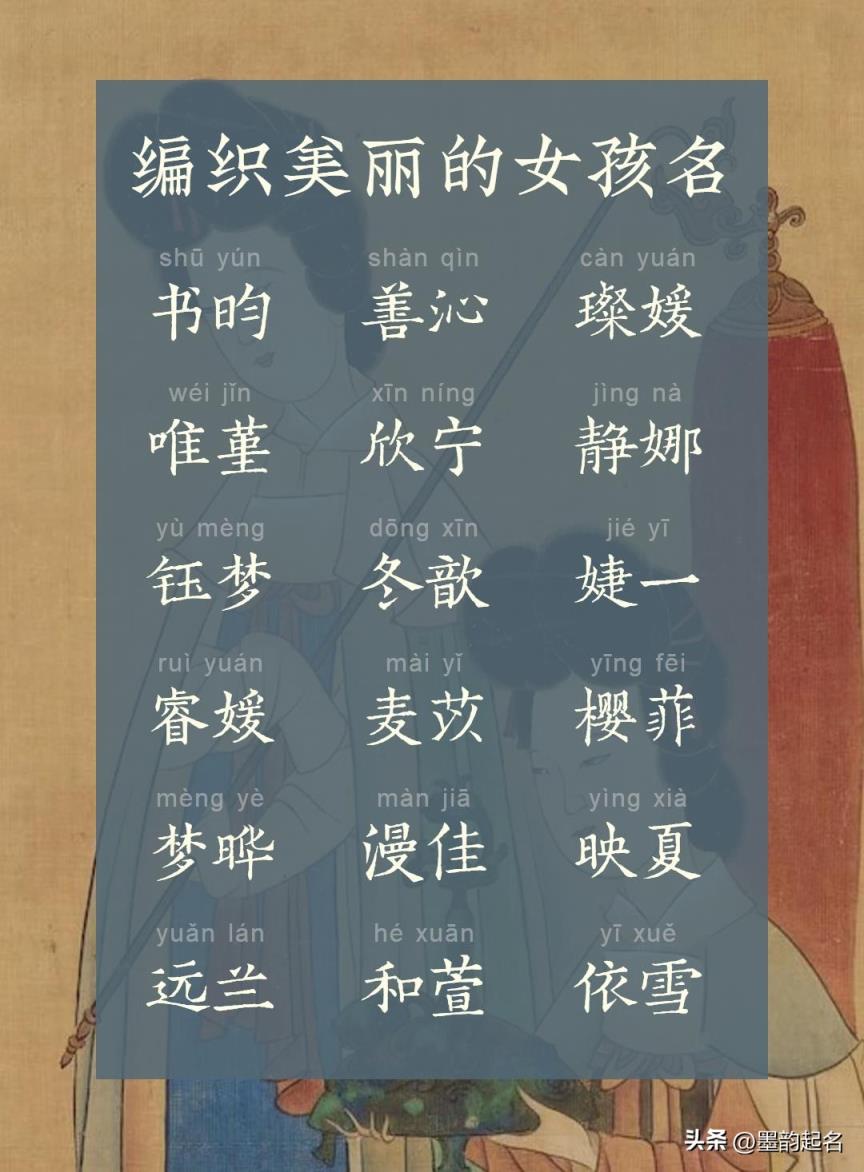 编织美丽的女孩名
shū yún shàn qìn càn yuán
书昀 善沁 璨媛
wéi jǐn xīn níng jìng nà
唯堇 欣宁 静娜
yù mèng dōng xīn jié yī
钰梦 冬歆 婕一
ruì yuán mài yǐ yīng fēi
睿媛 麦苡 樱菲
mèng yè màn jiā yìng xià
梦晔 漫佳 映夏
yuǎn lán hé xuān yī xuě
远兰 和萱 依雪
头条 @墨韵起名